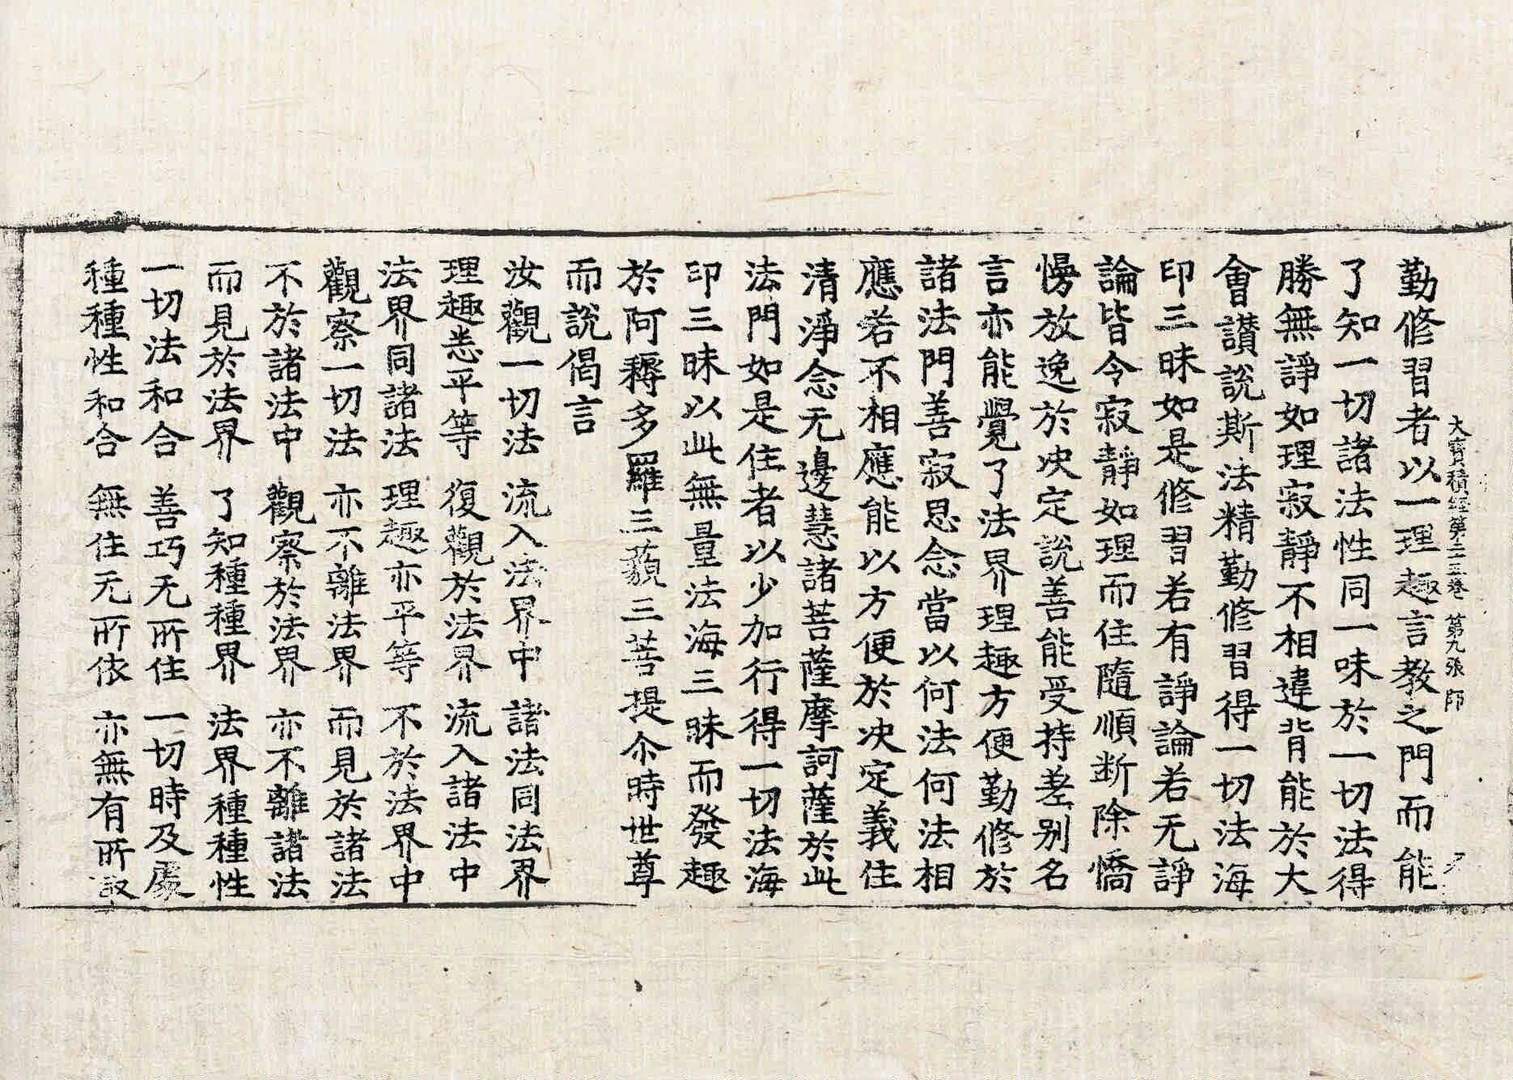 大寶積經第二十五卷 第九張 師
勤修習者以一理趣言教之門而能
了知一切諸法性同一味於一切法得
勝無諍如理寂靜不相違背能於大
會讃說斯法精勤修習得一切法海
印三昧如是修習若有諍論若无諍
論皆令寂靜如理而住隨順断除憍
慢放逸於决定說善能受持差别名
言亦能覺了法界理趣方便勤修於
諸法門善寂思念當以何法何法相
應若不相應能以方便於决定義住
清淨念无邊慧諸菩薩摩訶薩於此
法門如是住者以少加行得一切法海
印三昧以此無量法海三昧而發趣
於阿耨多羅三藐三菩提尒時世尊
而說偈言
汝觀一切法 流入法界中 諸法同法界
理趣悉平等 復觀於法界 流入諸法中
法界同諸法 理趣亦平等 不於法界中
觀察一切法 亦不離法界 而見於諸法
不於諸法中 觀察於法界 亦不離諸法
而見於法界 了知種種界 法界種種性
一切法和合 善巧无所住 一切時及處
種種性和合 無住无所依 亦無有所取